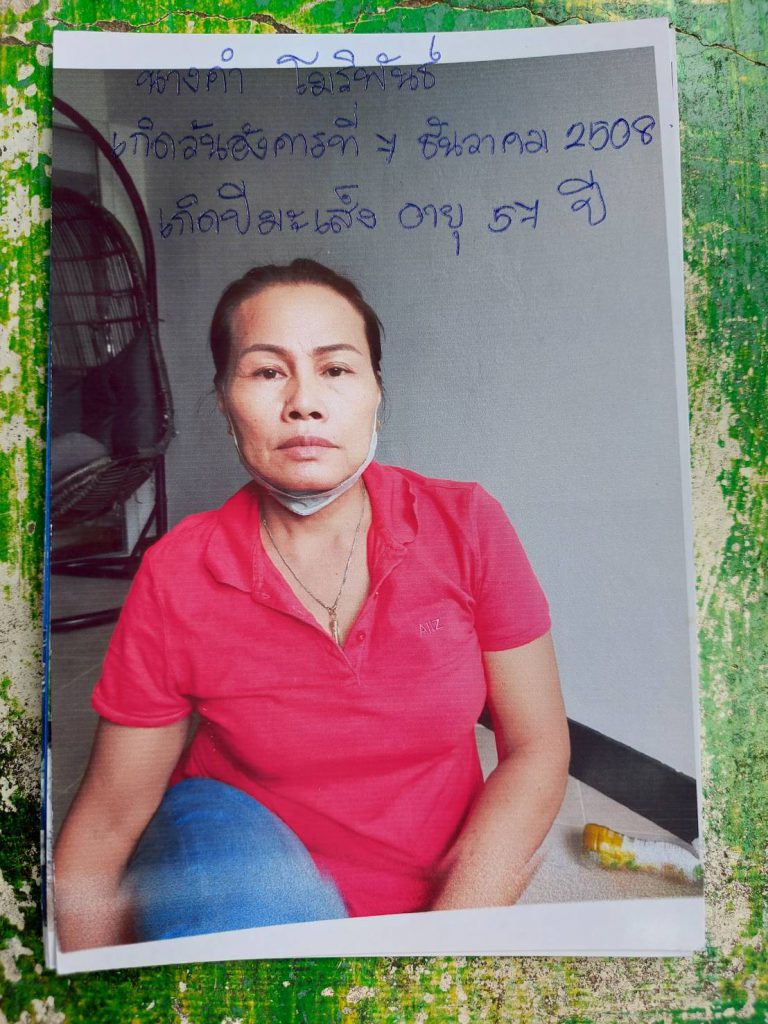 นางคำ โมริพันธ์
เกิดวันอังคารที่ 7 ธันวาคม 2508
เกิดปีมะเส็ง อายุ 57 ปี